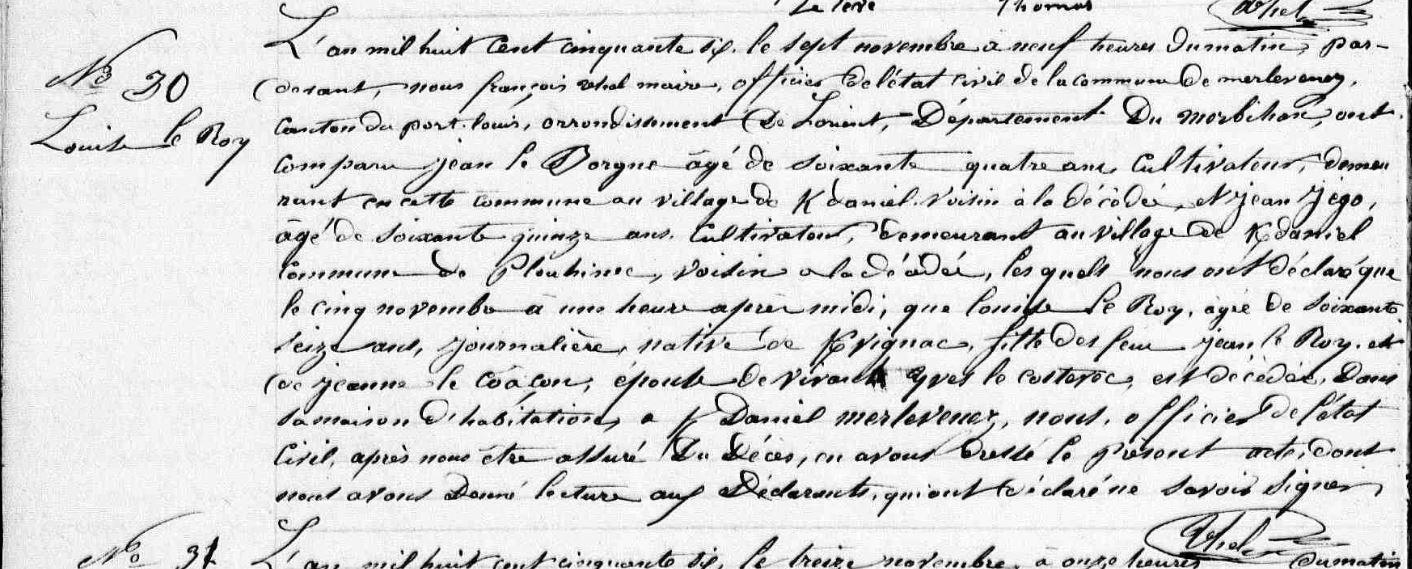 Le feve Thomas
L'an mil huit Cent cinquante six, le sept novembre a neuf heures du matin, par-
N° 30
devant, nous françois uhel maire, officier De l'état Civil de la commune De merlevenez,
Louise le Roy
Canton du port-louis, arrondissement De Lorient, Département Du morbihan, ont
comparu jean le Borgne âgé de soixante quatre ans, Cultivateur, demeu
rant en cette commune au village de K daniel voisin à la décédée, et jean jégo,
âgé de soixante quinze ans, Cultivateur, demeurant au village de K daniel
Commune de Plouhinec, voisin a la décédée, les quels nous ont déclaré que
le cinq novembre à une heure après midi, que louise Le Roy, agée de soixante
seize ans, journalière, native de Kvignac, fille des feux jean le Roy, et
de jeanne le épouse de vivant yves le est décédée, Dans
sa maison d'habitation, a K Daniel merlevenez, nous, officier De l'état
Civil, après nous être assuré Du Décès, en avons Dressé le Présent acte, dont
nous avons Donné lecture aux Déclarants, qui ont déclaré ne savoir signer
Uhel
N° 31 L'an mil huit cent cinquante six, le treize novembre, à onze heures du matin